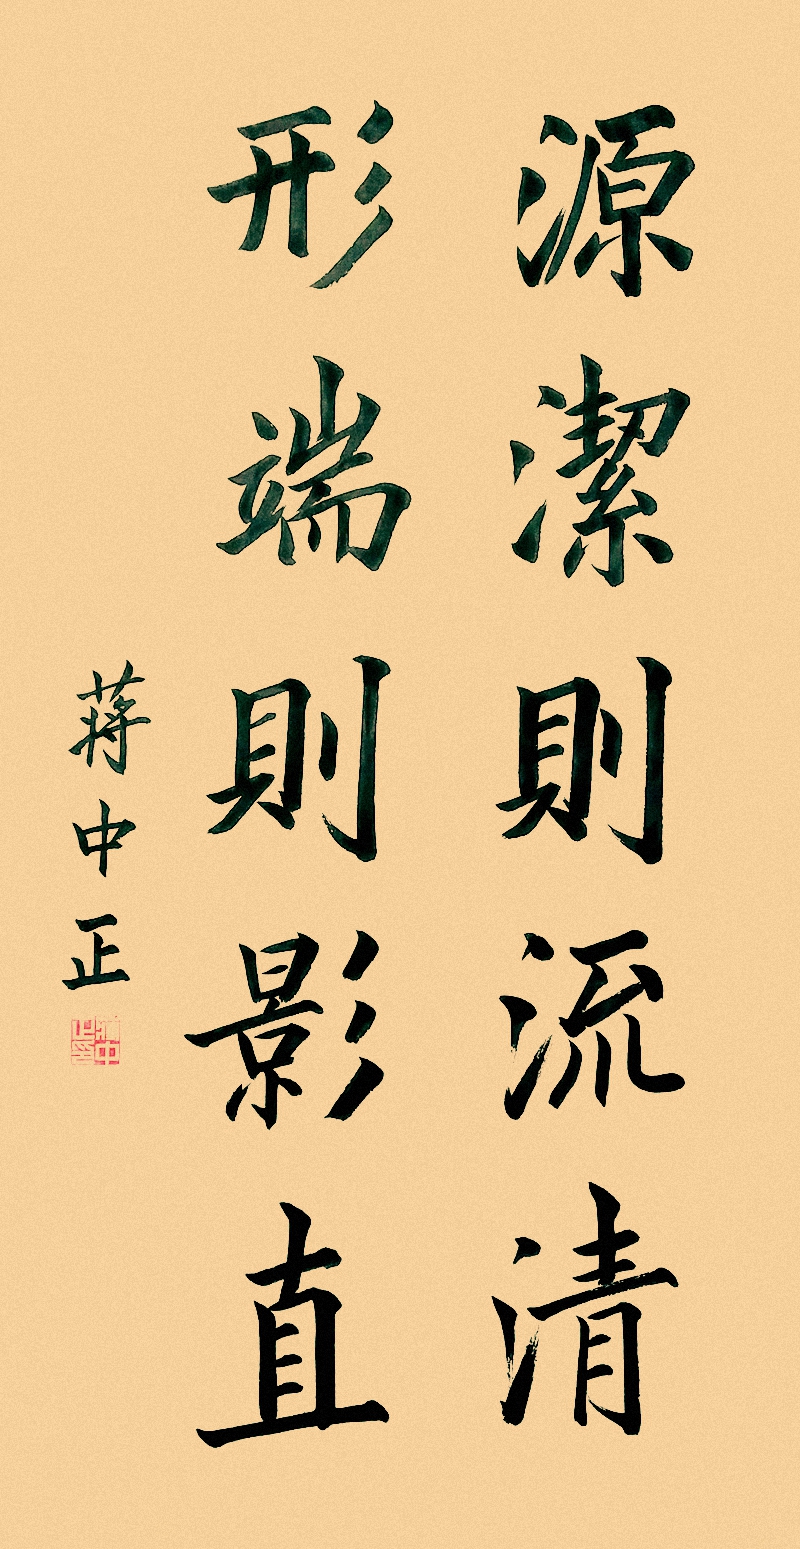 源潔則流清
形端則影直
蔣中正